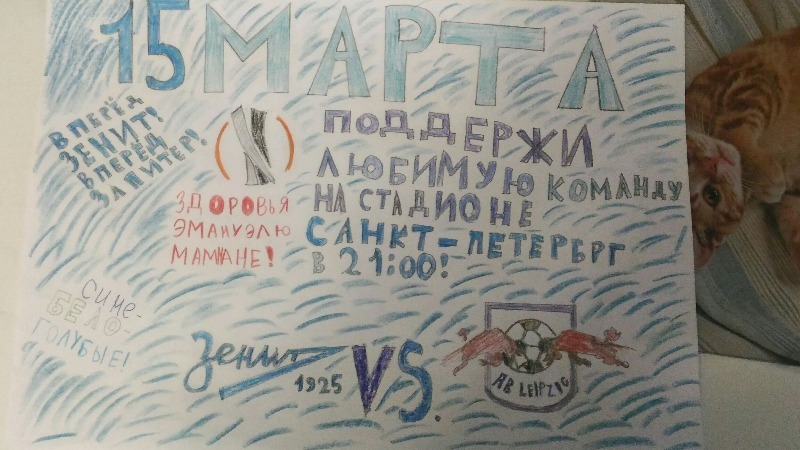 15 МАРТА
ВПЕРЁД
ЗЕНИТ!
ВПЕРЁД
ЗА ПИТЕР!
ПОДДЕРЖИ
ЛЮБИМУЮ КОМАНДУ
НА СТАДИОНЕ
САНКТ-ПЕТЕРБРГ
В 21:00!
ЗДОРОВЬЯ
ЭМАНУЭЛЮ
МАММАНЕ!
СИНЕ-
БЕЛО-
ГОЛУБЫЕ!
Зенит
1925
VS.
RB LEIPZIG